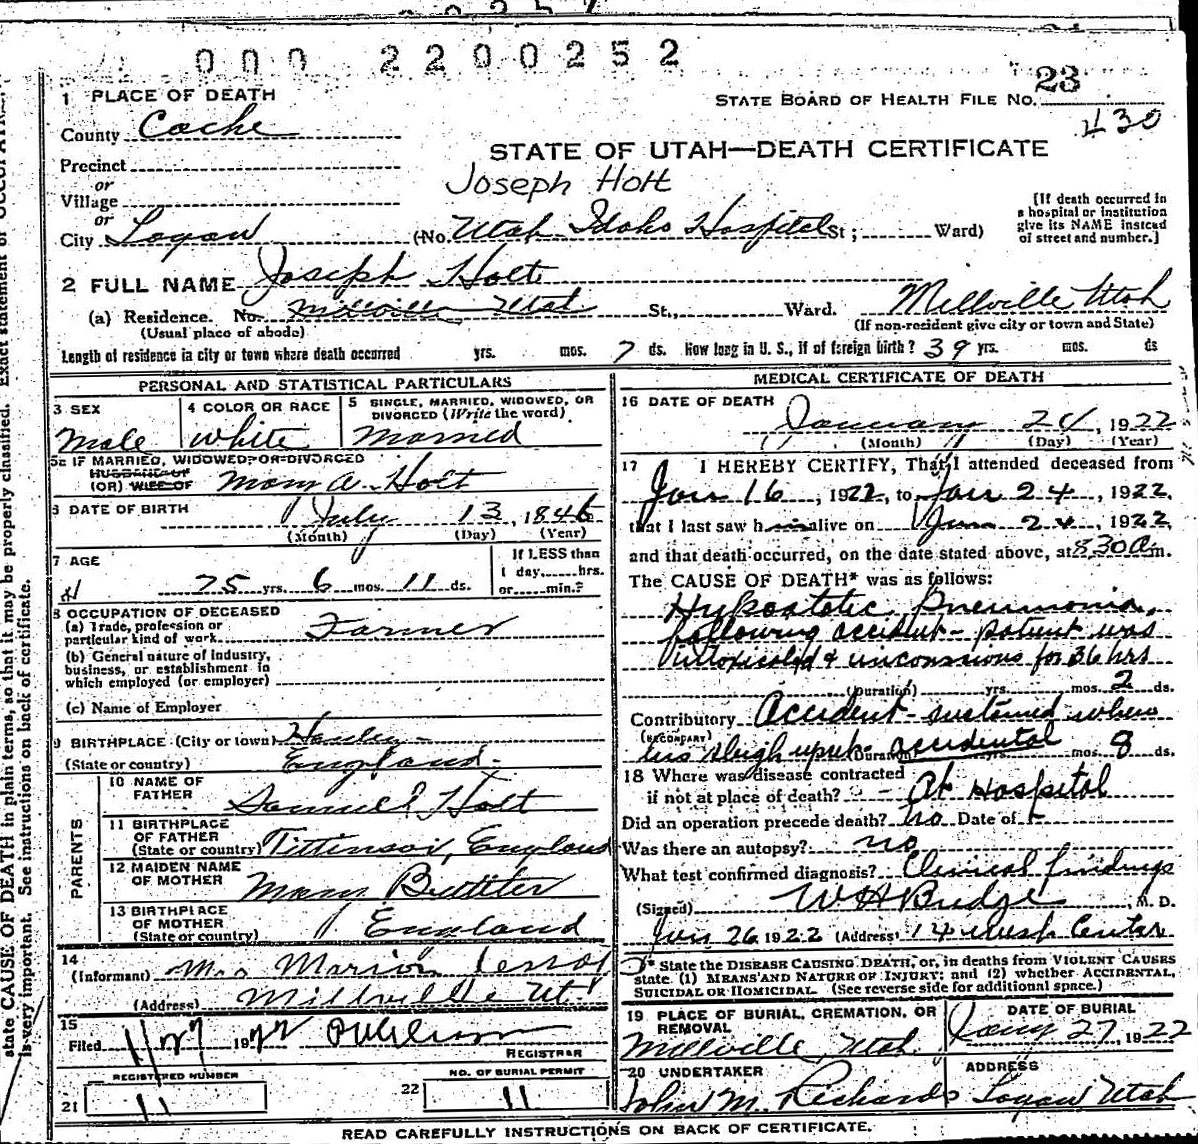 000 2200252
23
STATE BOARD OF HEALTH FILE NO.
430
1 PLACE OF DEATH
County Cache
STATE OF UTAH—DEATH CERTIFICATE
Precinct
or
Joseph Holt
Village
or
City Logan (No. Utah Idaho Hospital St; Ward)
[If death occurred in
a hospital or institution
give its NAME instead
of street and number.]
2 FULL NAME Joseph Holt
(a) Residence. No. Millville Utah St., Ward. Millville Utah
(Usual place of abode) (If non-resident give city or town and State)
Length of residence in city or town where death occurred yrs. mos. 7 ds. How long in U. S., if of foreign birth? 39 yrs. mos. ds
PERSONAL AND STATISTICAL PARTICULARS
3 SEX
Male
4 COLOR OR RACE
White
5 SINGLE, MARRIED, WIDOWED, OR
DIVORCED (Write the word)
Married
5a IF MARRIED, WIDOWED OR DIVORCED
HUSBAND OF
(OR) WIFE OF Mary A. Holt
6 DATE OF BIRTH July 13, 1846
(Month) (Day) (Year)
7 AGE
75 yrs. 6 mos. 11 ds.
If LESS than
1 day, hrs.
or min.?
8 OCCUPATION OF DECEASED
(a) Trade, profession or
particular kind of work Farmer
(b) General nature of Industry,
business, or establishment in
which employed (or employer)
(c) Name of Employer
9 BIRTHPLACE (City or town)
(State or country) England
PARENTS
10 NAME OF
FATHER Samuel Holt
11 BIRTHPLACE
OF FATHER
(State or country) Tittensor, England
12 MAIDEN NAME
OF MOTHER Mary
13 BIRTHPLACE
OF MOTHER
(State or country) England
14
(Informant) Mrs Marion
(Address) Millville Ut.
15
Filed 1/27 1922
REGISTRAR
REGISTERED NUMBER
21 11
NO. OF BURIAL PERMIT
22 11
MEDICAL CERTIFICATE OF DEATH
16 DATE OF DEATH
January 24, 1922
(Month) (Day) (Year)
17 I HEREBY CERTIFY, That I attended deceased from
Jan 16, 1922, to Jan 24, 1922.
that I last saw him alive on Jan 24, 1922,
and that death occurred, on the date stated above, at 8 30 a m.
The CAUSE OF DEATH* was as follows:
Hypostatic Pneumonia,
following accident - patient was
intoxicated & unconscious for 36 hrs
(Duration) yrs. mos. 2 ds.
Contributory Accident - sustained when
(SECONDARY)
his sleigh upset - accidental (Duration) mos. 8 ds.
18 Where was disease contracted
if not at place of death? At Hospital
Did an operation precede death? no Date of
Was there an autopsy? no
What test confirmed diagnosis? Clinical findings
(Signed) W H Budge, M. D.
Jan 26 1922 (Address) 14 West Center
* State the DISEASE CAUSING DEATH, or, in deaths from VIOLENT CAUSES
state (1) MEANS AND NATURE OF INJURY; and (2) whether ACCIDENTAL,
SUICIDAL OR HOMICIDAL. (See reverse side for additional space.)
19 PLACE OF BURIAL, CREMATION, OR
REMOVAL
Millville, Utah.
DATE OF BURIAL
Jany 27, 1922
20 UNDERTAKER
John M. Richards
ADDRESS
Logan Utah
READ CAREFULLY INSTRUCTIONS ON BACK OF CERTIFICATE.
state CAUSE OF DEATH in plain terms, so that it may be properly classified. Exact statement of OCCUPATION
is very important. See instructions on back of certificate.